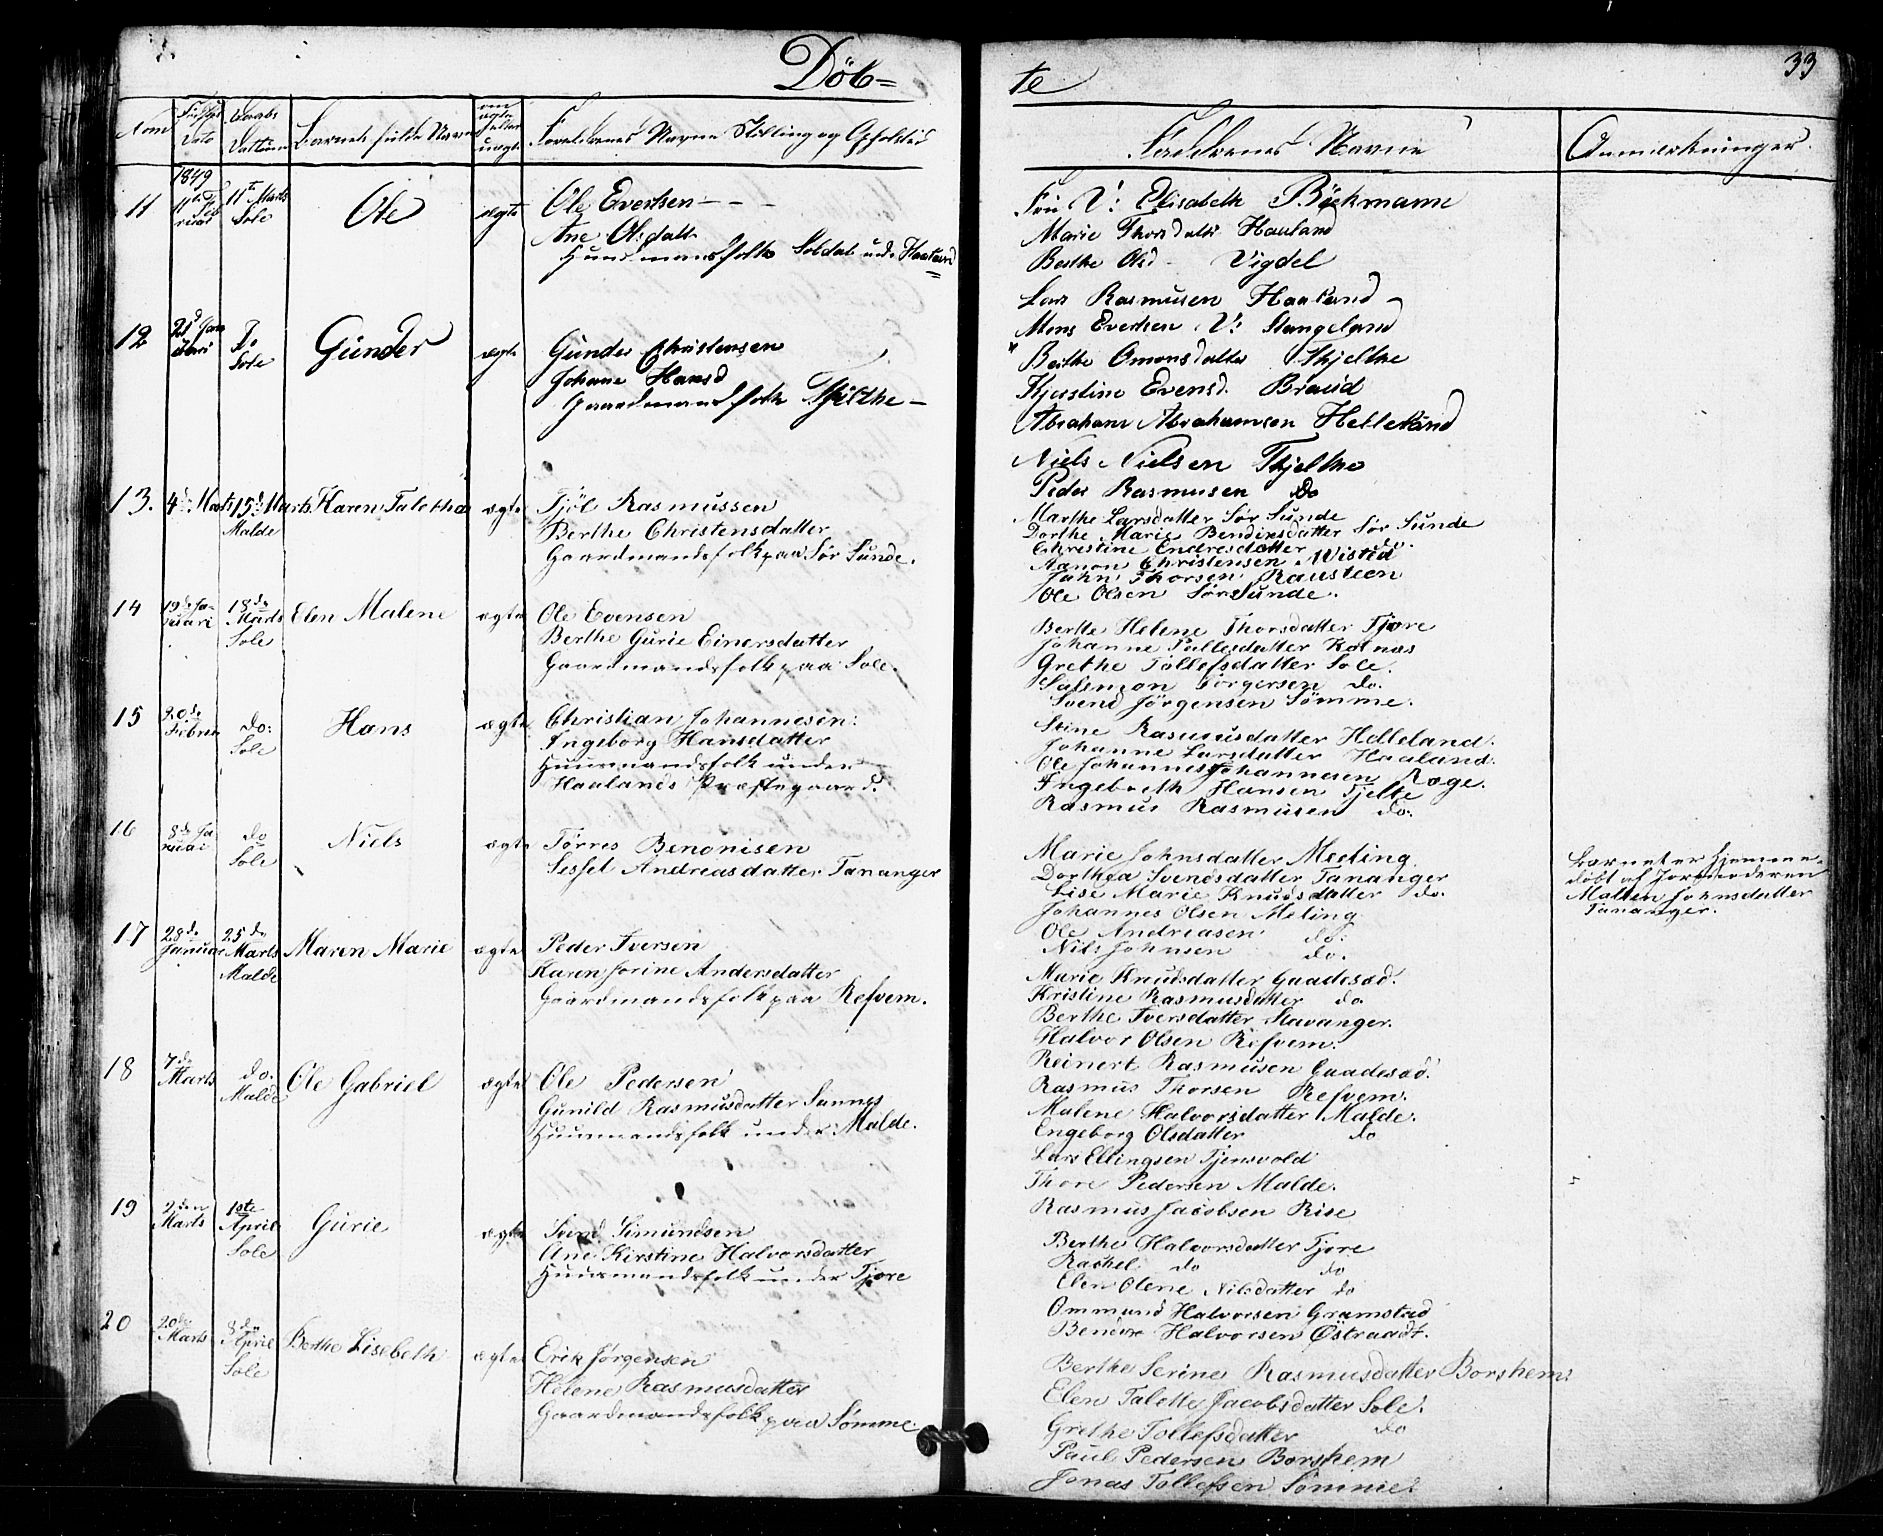 Döb=
te
33
Barnets fulde Navn
om ægte eller uægte
Forældrenes Navne Stilling og Opholdst
Faddernes Navne
Anmerkninger.
1849
11
11te Februar
11te Marts
Sole
Ole
ægte
Ole Evertsen - - -
Ane Olsdatt
Huusmandsfolk Soldat und. Haaland
Fru V: Elisabeth Böckmann
Marie Thorsdattr Hauland
Berthe Olsd - Vigdel
Lars Rasmusen Haaland -
Mons Evertsen V: Stangeland
12
21d Januari
Do
Sole
Gunder
ægte
Gunder Christensen
Johane Hansd
Gaardmandsfolk Tjelthe -
Berthe Omonsdatter Thjelthe
Kjerstine Evensd. Braud
Abraham Abrahamsen Helleland
Niels Nielsen Thjelthe
Peder Rasmusen Do
13.
4de Marts
15de Marts
Malde
Karen Taletha
ægte
Tjöl Rasmussen
Berthe Christensdatter
Gaardmandsfolk paa Sör Sunde.
Marthe Larsdatter Sör Sunde
Dorthe Marie Bendixsdatter Sör Sunde
Christine Endresdatter do.
Aanon Christensen Wistid
John Thorsen Rausteen
Ole Olsen Sör Sunde.
14
19de Januari
18de Marts
Sole
Elen Malene
ægte
Ole Evensen
Berthe Gurie Einersdatter
Gaardmandsfolk paa Sole.
Berthe Helene Thorsdatter Tjore
Johanne Pallesdatter Kolnæs
Grethe Tollefsdatter Sole.
Salemon Torgersen do.
Svend Jörgensen Sömme.
15
20de Februar
do:
Sole
Hans
ægte
Christian Johannesen:
Ingeborg Hansdatter
Huusmandsfolk under
Haalands Præstegaard.
Stine Rasmusdatter Helleland.
Johanne Larsdatter Haaland.
Ole Johannes Johannesen Ræge.
Ingebreth Hansen Tjelte
Rasmus Rasmusen do.
16
8de Januai
do
Sole
Niels
ægte
Törres Benonisen
Sessel Andreasdatter Tananger
Marie Johnsdatter Meeling
Dorthea Svendsdatter Tananger
Lise Marie Knudsdatter do.
Johannes Olsen Meling
Ole Andreasen do.
Nils Johnsen do.
Barnet er hjemme-
döbt af Jormoderen
Malen Johnsdatter
Tananger.
17
28de Januar
25de Marts
Malde
Maren Marie
ægte
Peder Iversen
Karen Jorine Andersdatter
Gaardmandsfolk paa Refvem.
Marie Knudsdatter Gaadesæd.
Kristine Rasmusdatter do
Berthe Iversdatter Stavanger.
Halvor Olsen Refvem.
Reinert Rasmusen Gaadesæd.
Rasmus Thorsen Refvem.
18
7de Marts
do.
Malde
Ole Gabriel
ægte
Ole Pedersen
Gunild Rasmusdatter Sannes
Huusmandsfolk under Malde.
Malene Halvorsdatter Malde.
Engeborg Olsdatter do
Lars Ellingsen Tjensvold
Thore Pedersen Malde.
Rasmus Jacobsen Rise
19
2den Marts
1ste April
Sole
Gurie
ægte
Svend Simundsen
Ane Kirstine Halvorsdatter
Huusmandsfolk under Tjore
Berthe Halvorsdatter Tjore
Rachel do do
Elen Olene Nilsdatter do
Ommund Halvorsen Gramstad
Bendix Halvorsen Østraadt.
20
20de Marts
8de April
Sole
Berthe Lisebeth
ægte
Erik Jörgensen
Helene Rasmusdatter
Gaardmandsfolk paa Sömme.
Berthe Serine Rasmusdatter Borshem.
Elen Talette Jacobsdatter Sole.
Grethe Tollefsdatter do
Paul Pedersen Borshem
Jonas Tollefsen Sömme.